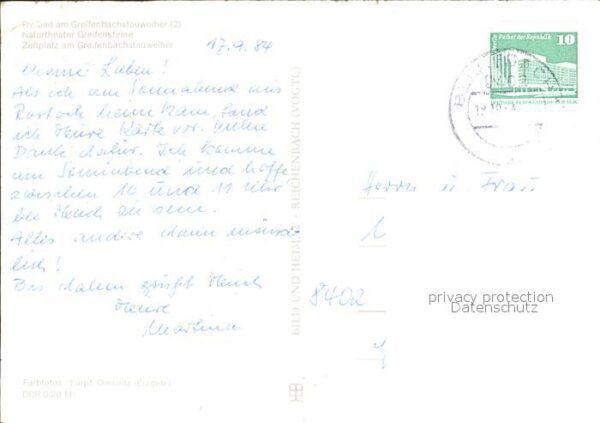 Freibad am Greifenbachstauweiher (2)
Naturtheater Greifensteine
Zeltplatz am Greifenbachstauweiher
17.9.84
Meine Lieben!
Als ich am Sonnabend aus
Rostock heim kam, fand
ich Heure Karte vor. Vielen
Dank dafür. Ich komme
am Sonnabend und hoffe
zwischen 10 und 11 Uhr
bei Heuch zu sein.
Alles andere dann münd-
lich!
Bis dahin grüßt Heuch
Heure
Martina
Farbfotos: Karpf, Oelsnitz (Erzgeb.)
DDR 0,20 M
BILD UND HEIMAT REICHENBACH (VOGTL)
Palast der Republik
10
Herrn u. Frau
8402
privacy protection
Datenschutz